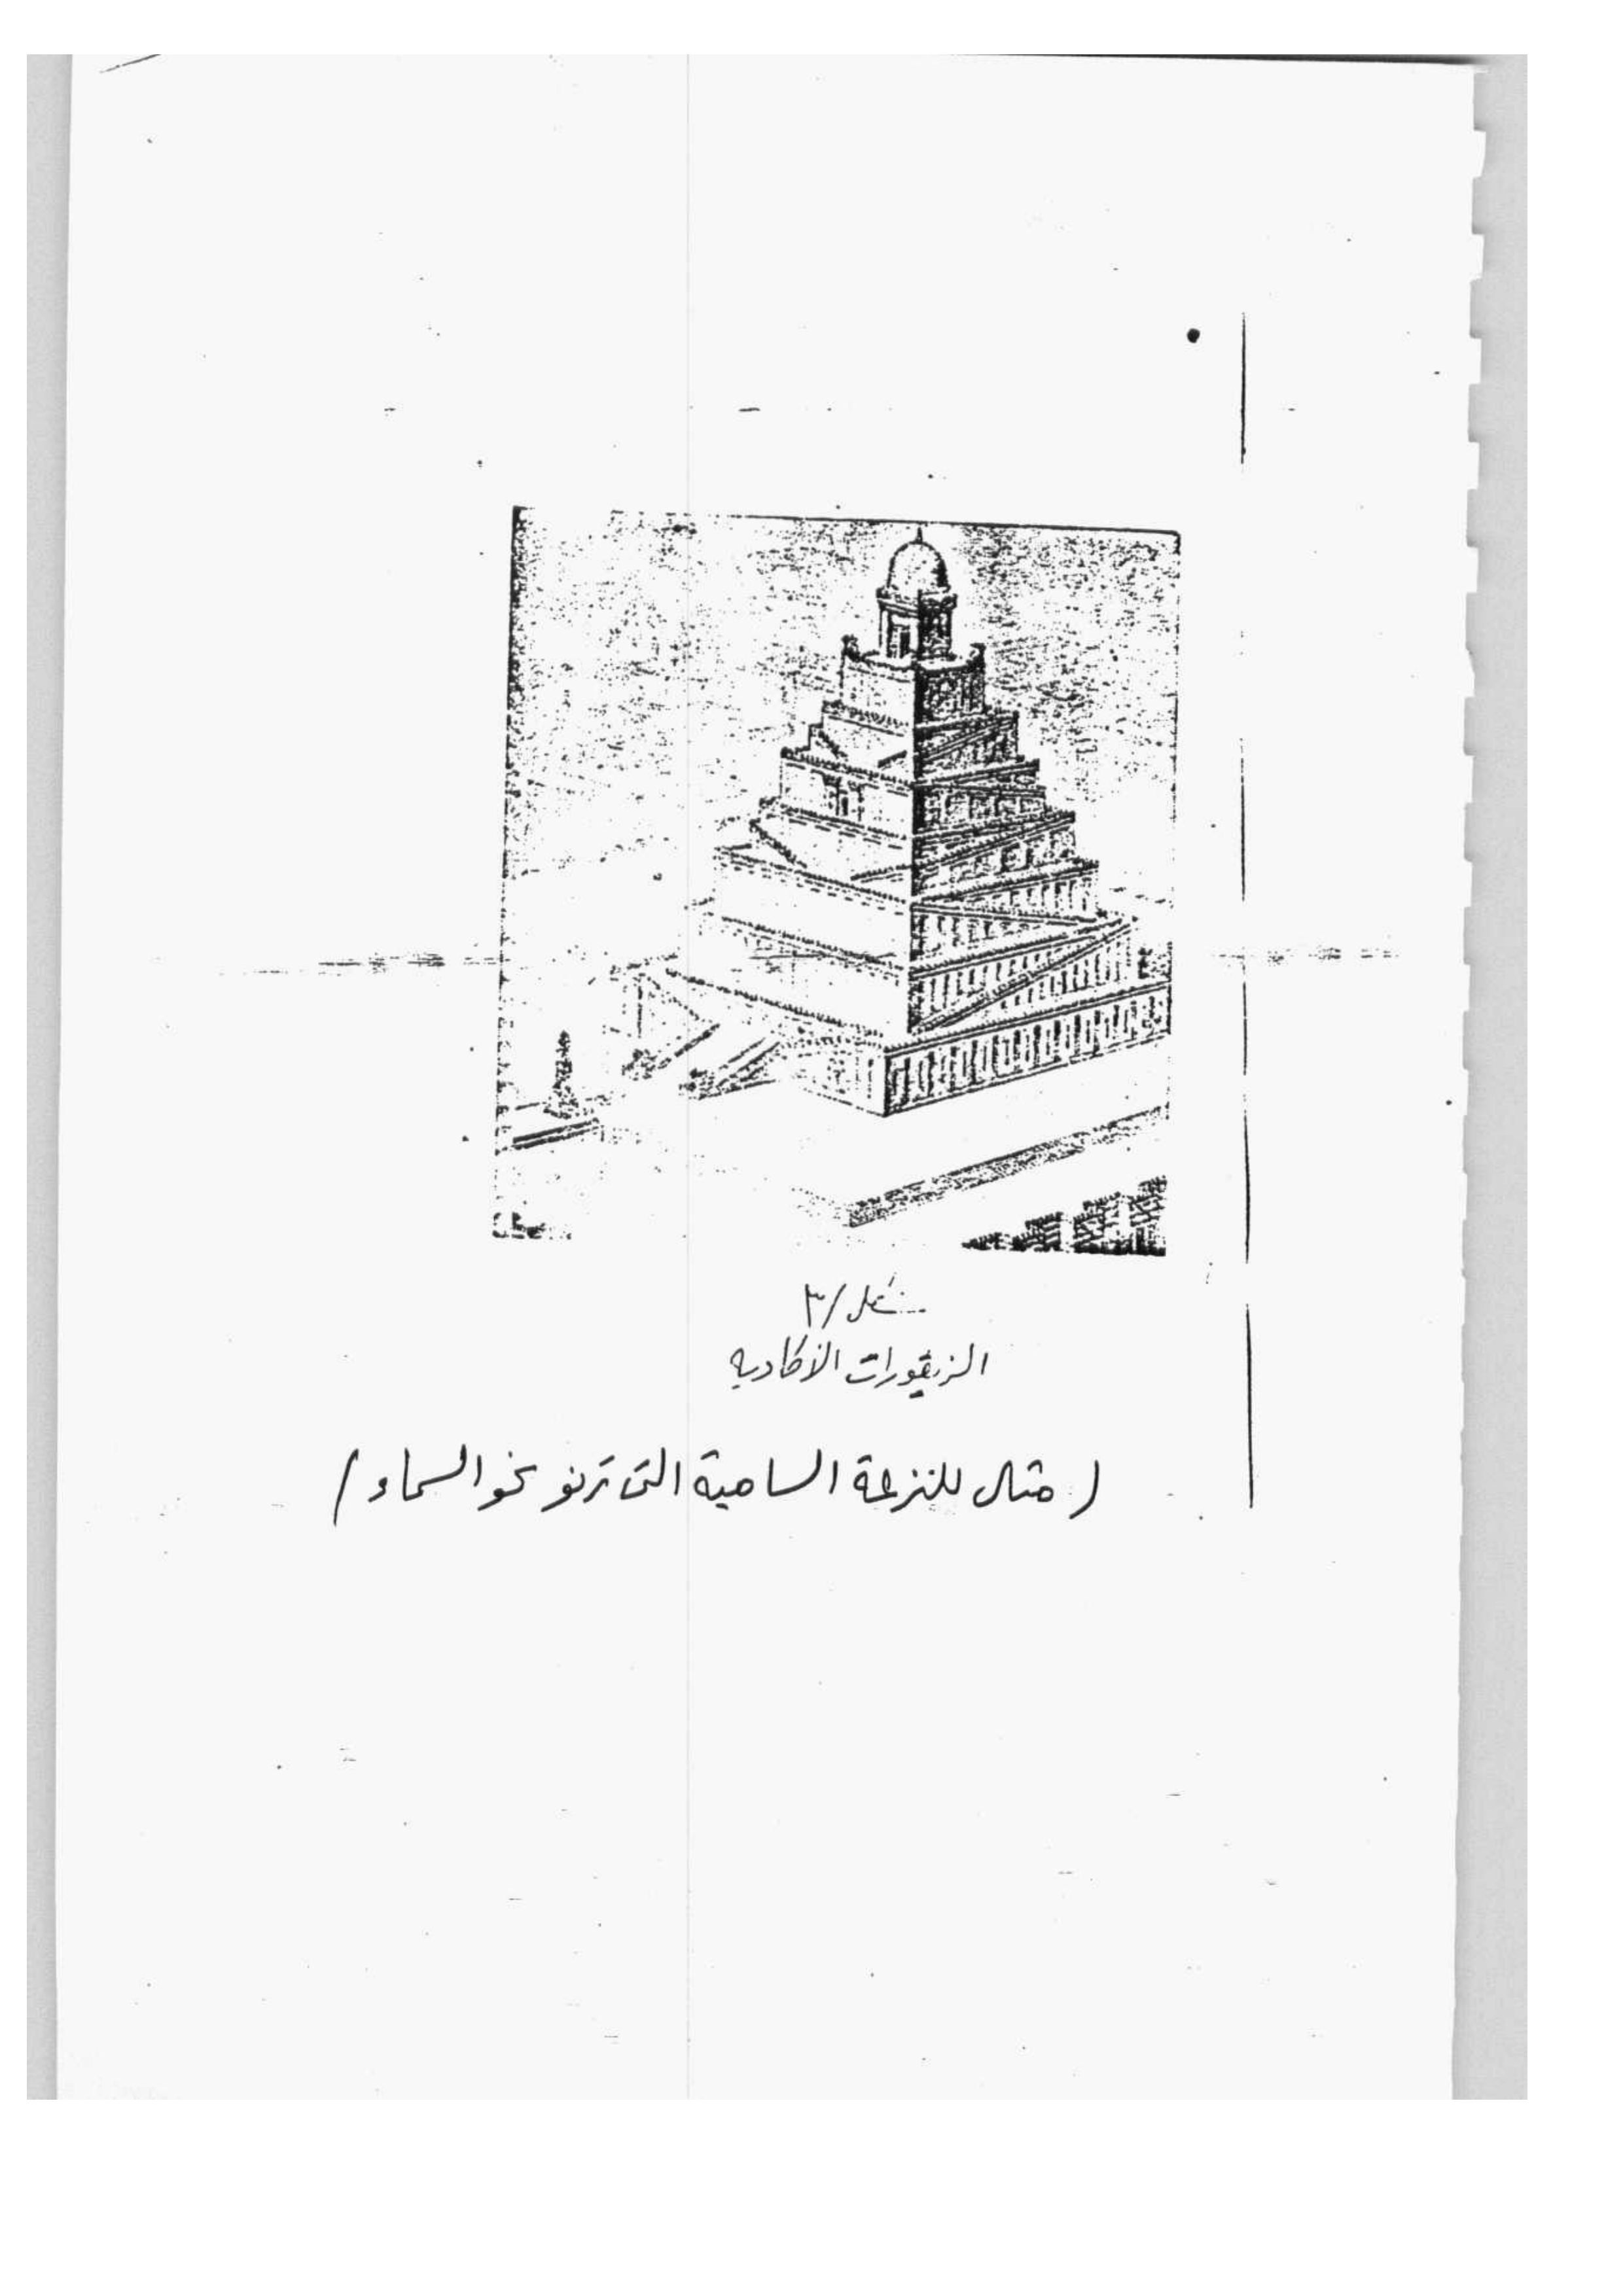 شكل/٣
الزيقورات الأكاديه
(مثال للنزعة السامية التى ترنو نحو السماء)